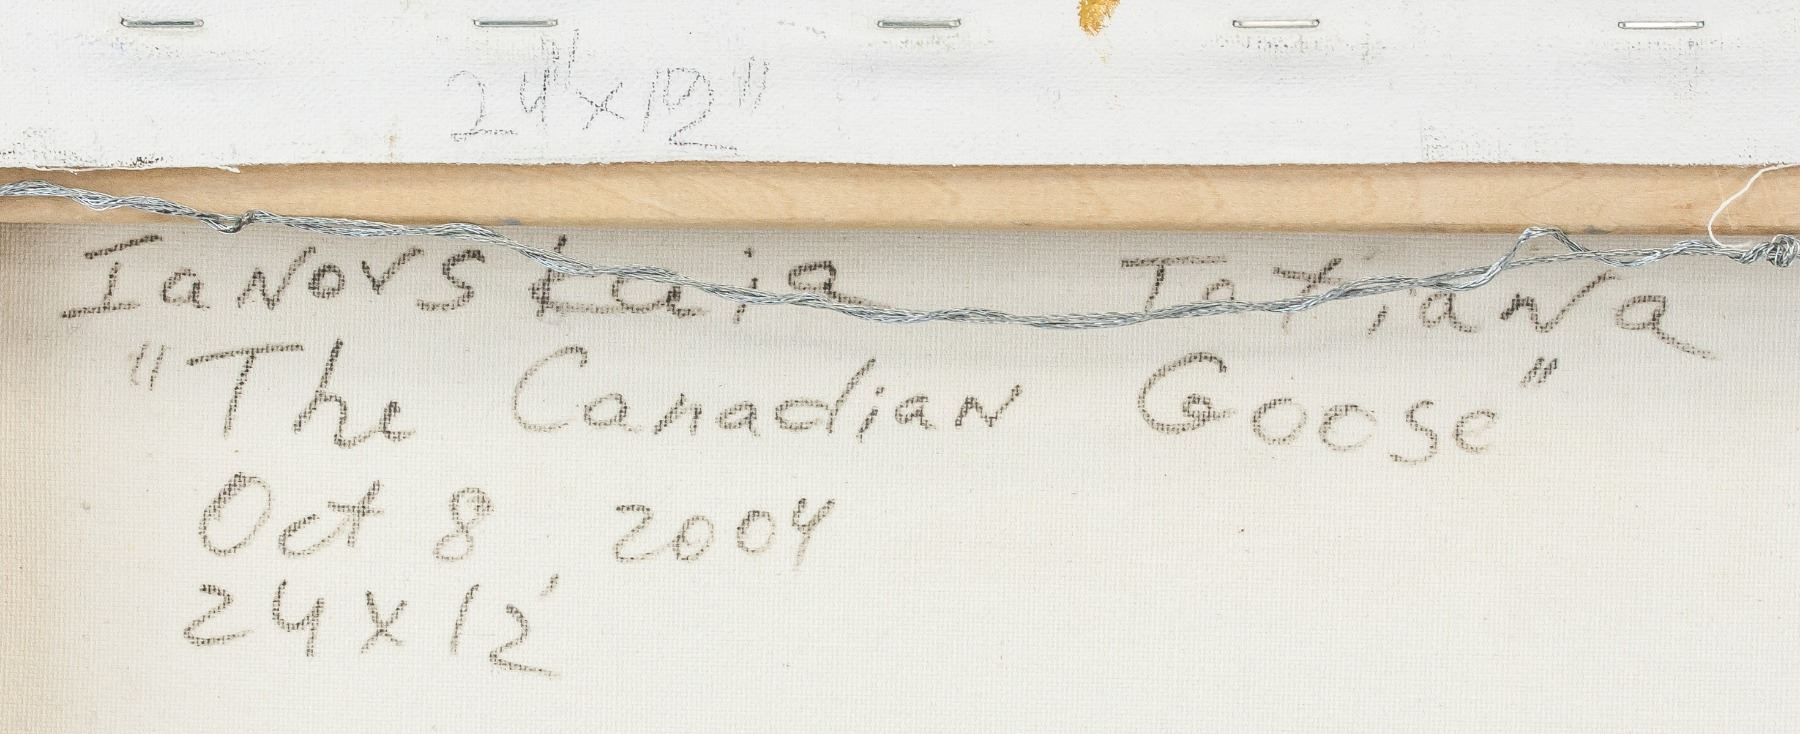 24"x12"
Ianovskaia Tatiana
"The Canadian Goose"
Oct 8 2004
24x12'